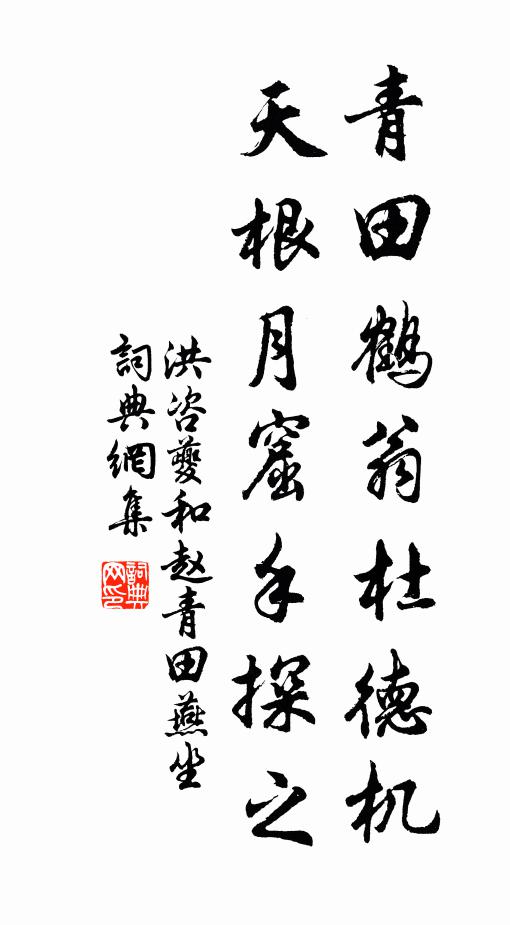 青田鹤翁杜德机
天根月窟手探之
洪咨夔和赵青田燕坐
詞典網集
詞典网印